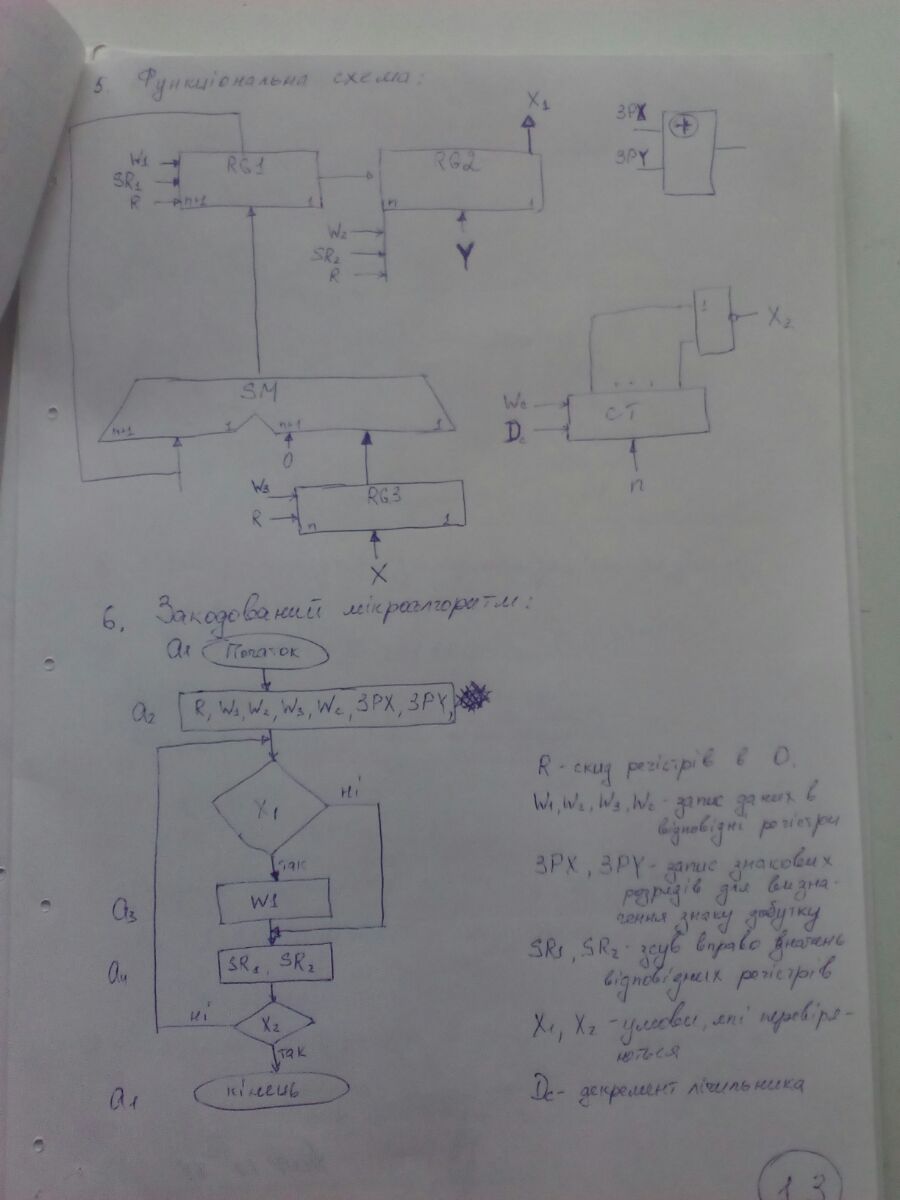 5. Функціональна схема:
X1
ЗРХ
ЗРY
W1
SR1
R
RG1
n+1
1
RG2
n
1
W2
SR2
R
Y
1
X2
SM
n+1
1
n+1
1
0
Wc
Dc
CT
n
W3
R
RG3
n
1
X
6. Закодований мікроалгоритм:
a1
Початок
a2
R, W1, W2, W3, Wc, ЗРХ, ЗРY,
X1
ні
так
a3
W1
a4
SR1, SR2
ні
X2
так
a1
кінець
R - скид регістрів в 0.
W1, W2, W3, Wc - запис даних в
відповідні регістри
ЗРХ, ЗРY - запис знакових
розрядів для визна-
чення знаку добутку
SR1, SR2 - зсув вправо значень
відповідних регістрів
X1, X2 - умови, які перевіря-
ються
Dc - декремент лічильника